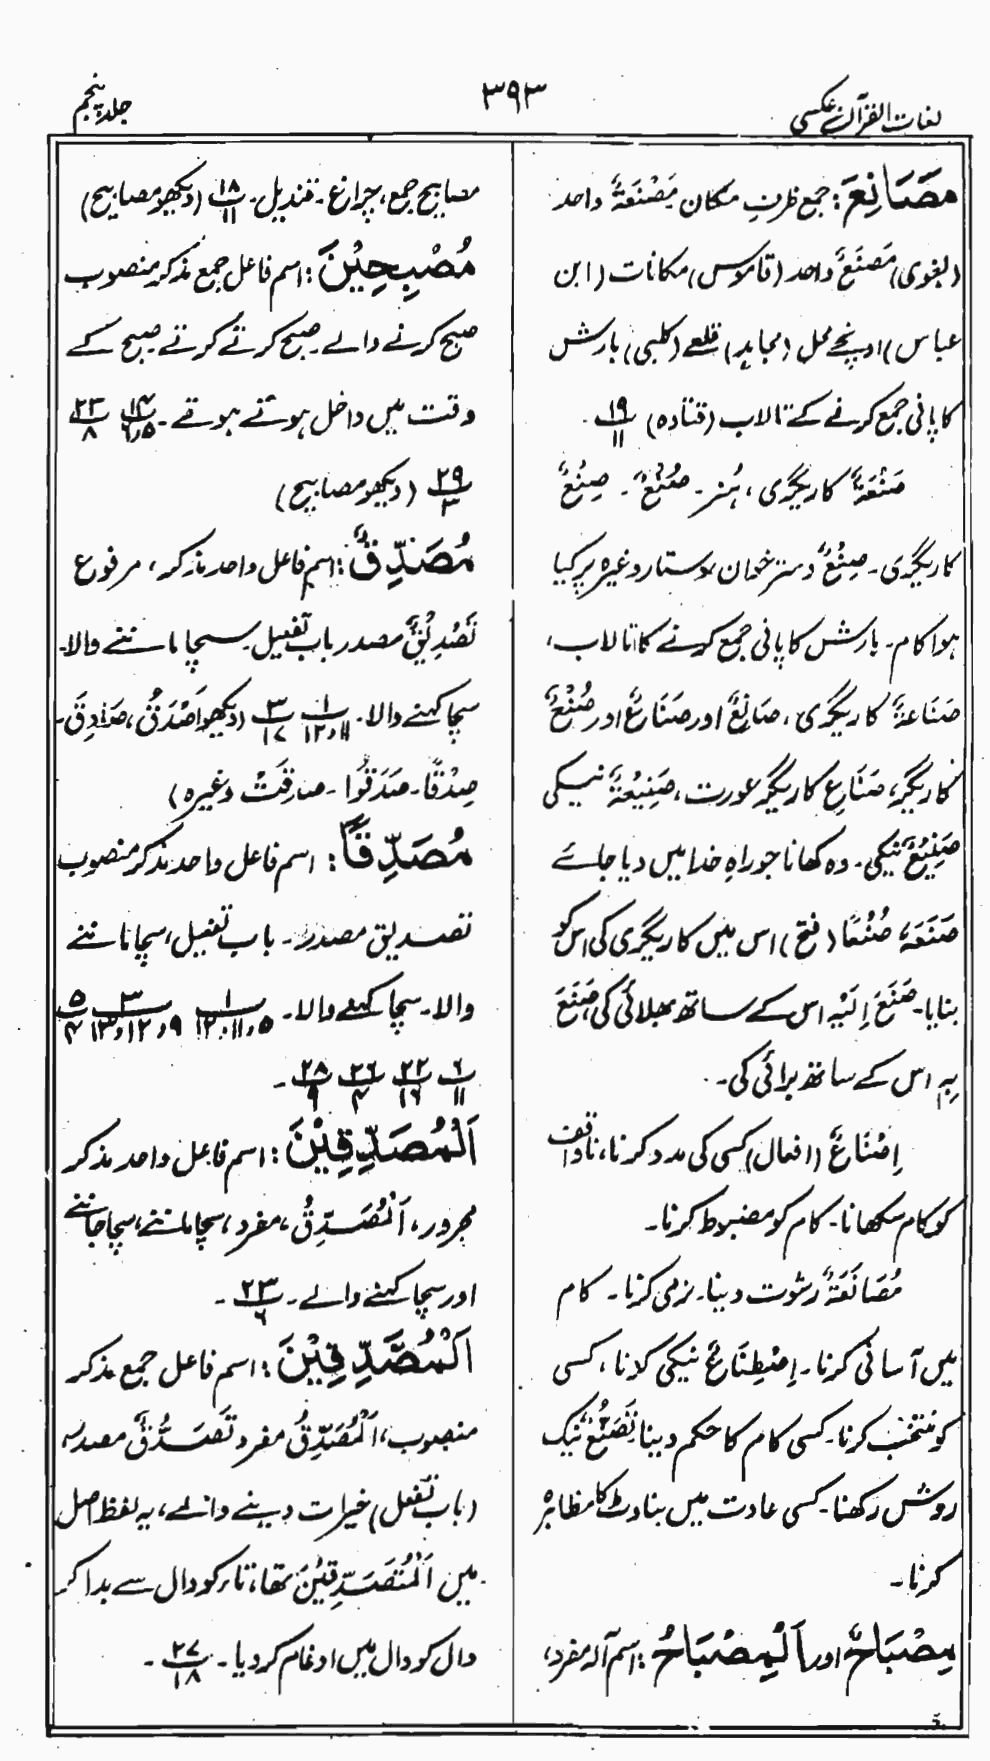 لغات القرآن عکسی
۳۹۳
جلد پنجم
مَصَانِعَ: جمع ظرف مکان مَصْنَعَۃٌ واحد
(لغوی) مَصْنَعٌ واحد (قاموس) مکانات (ابن
عباس) اونچے محل (مجاہد) قلعے (کلبی) بارش
کا پانی جمع کرنے کے تالاب (قتادہ) ۱۹/۱۱۔
صَنْعَۃٌ کاریگری، ہُنر۔ صُنْعٌ۔ صِنْعٌ
کاریگری۔ صِنْعٌ دسترخوان، دستار وغیرہ پر کیا
ہوا کام۔ بارش کا پانی جمع کرنے کا تالاب،
صَنَاعَۃٌ کاریگری، صَانِعٌ اور صَنَاعٌ اور صِنْعٌ
کاریگر، صَنَاعٌ کاریگر عورت، صَنِیْعَۃٌ نیکی
صَنِیْعٌ نیکی۔ وہ کھانا جو راہِ خدا میں دیا جائے
صَنَعَہٗ صُنْعًا (فتح) اس میں کاریگری کی اس کو
بنایا۔ صَنَعَ اِلَیْہِ اس کے ساتھ بھلائی کی صَنَعَ
بِہٖ اس کے ساتھ برائی کی۔
اِصْنَاعٌ (افعال) کسی کی مدد کرنا، ناواقف
کو کام سکھانا۔ کام کو مضبوط کرنا۔
مُصَانَعَۃٌ رشوت دینا۔ نرمی کرنا۔ کام
میں آسانی کرنا۔ اِصْطِنَاعٌ نیکی کرنا، کسی
کو منتخب کرنا۔ کسی کام کا حکم دینا تَصَنُّعٌ نیک
روش رکھنا۔ کسی عادت میں بناوٹ کا مظاہرہ
کرنا۔
مِصْبَاحٌ اور اَلْمِصْبَاحُ: اسم آلہ مفرد،
مصابیح جمع، چراغ۔ قندیل۔ ۱۸/۱۱ (دیکھو مصابیح)
مُصْبِحِیْنَ: اسم فاعل جمع مذکر منصوب
صبح کرنے والے۔ صبح کرتے کرتے۔ صبح کے
وقت میں داخل ہوتے ہوتے۔ ۱۴/۶،۵ ۲۳/۸
۲۹/۳ (دیکھو مصابیح)
مُصَدِّقٌ: اسم فاعل واحد مذکر، مرفوع
تَصْدِیْقٌ مصدر باب تفعیل۔ سچا ماننے والا۔
سچا کہنے والا۔ ۱/۱۲،۱۱ ۳/۱۷ (دیکھو اَصْدَقُ، صَادِقَ۔
صِدْقًا۔ صَدَقُوا۔ صَدَقَتْ وغیرہ)
مُصَدِّقًا: اسم فاعل واحد مذکر منصوب
تصدیق مصدر۔ باب تفعیل، سچا ماننے
والا۔ سچا کہنے والا۔ ۱/۱۲،۱۱،۵ ۳/۱۳،۱۲،۹ ۵/۴
۶/۱۱ ۲۲/۱۶ ۲۶/۴ ۲۸/۹۔
اَلْمُصَدِّقِیْنَ: اسم فاعل واحد مذکر
مجرور، اَلْمُصَدِّقُ، مفرد، سچا ماننے، سچا جاننے
اور سچا کہنے والے۔ ۲۳/۶۔
اَلْمُصَّدِّقِیْنَ: اسم فاعل جمع مذکر
منصوب، اَلْمُصَّدِّقُ مفرد تَصَدُّقٌ مصدر،
(باب تفعل) خیرات دینے والے، یہ لفظ اصل
میں اَلْمُتَصَدِّقِیْنَ تھا، تا، کو دال سے بدل کر
دال کو دال میں ادغام کر دیا۔ ۲۷/۱۸۔